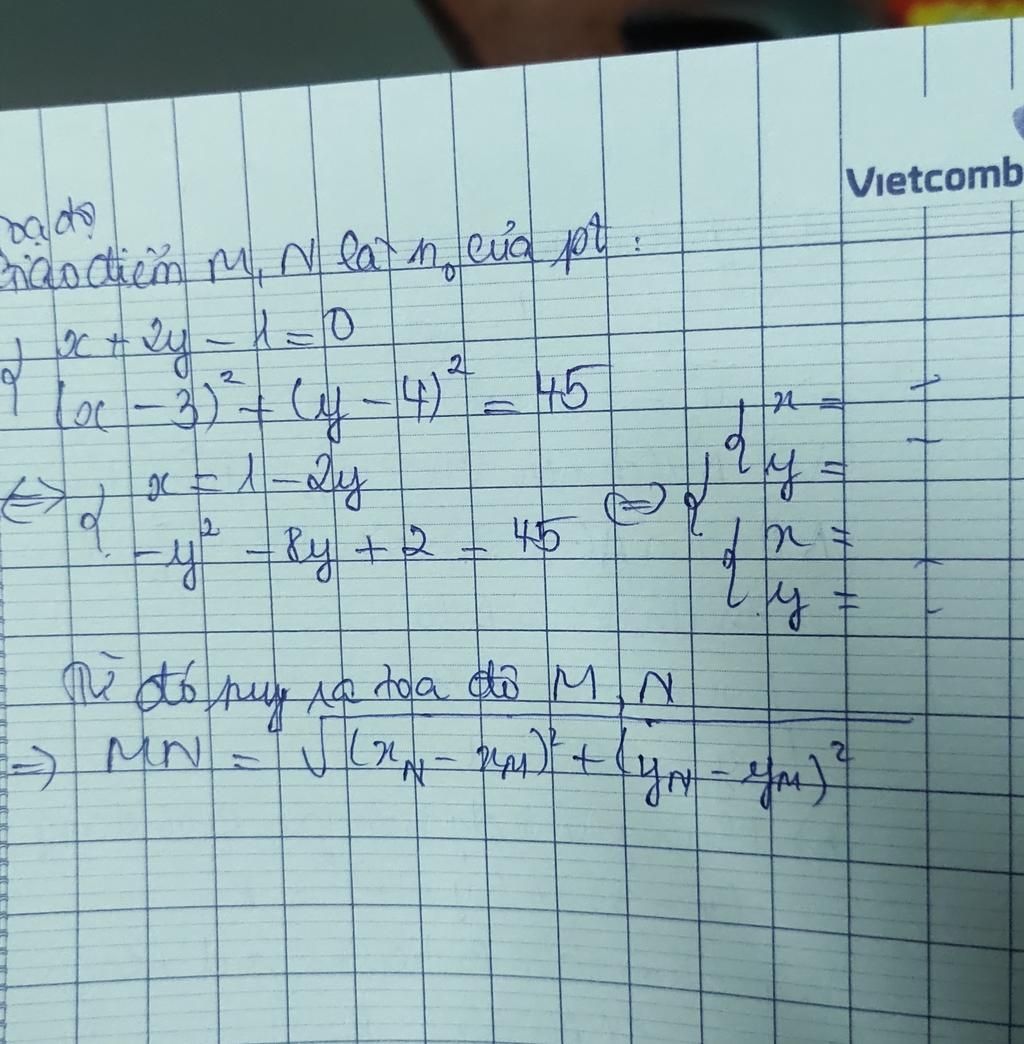 Vietcomb
oạ độ
Giao điểm M, N là n₀ của pt :
{ x + 2y - 1 = 0
(x - 3)² + (y - 4)² = 45
⇔ { x = 1 - 2y
-y² - 8y + 2 = 45 ⇔ {
{ x =
y =
{ x =
y =
Từ đó suy ra tọa độ M, N
⇒ MN = √((x_N - x_M)² + (y_N - y_M)²)